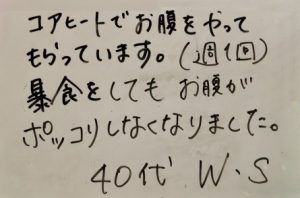 コアヒートでお腹をやって
もらっています。(週1回)
暴食をしてもお腹が
ポッコリしなくなりました。
40代 W・S